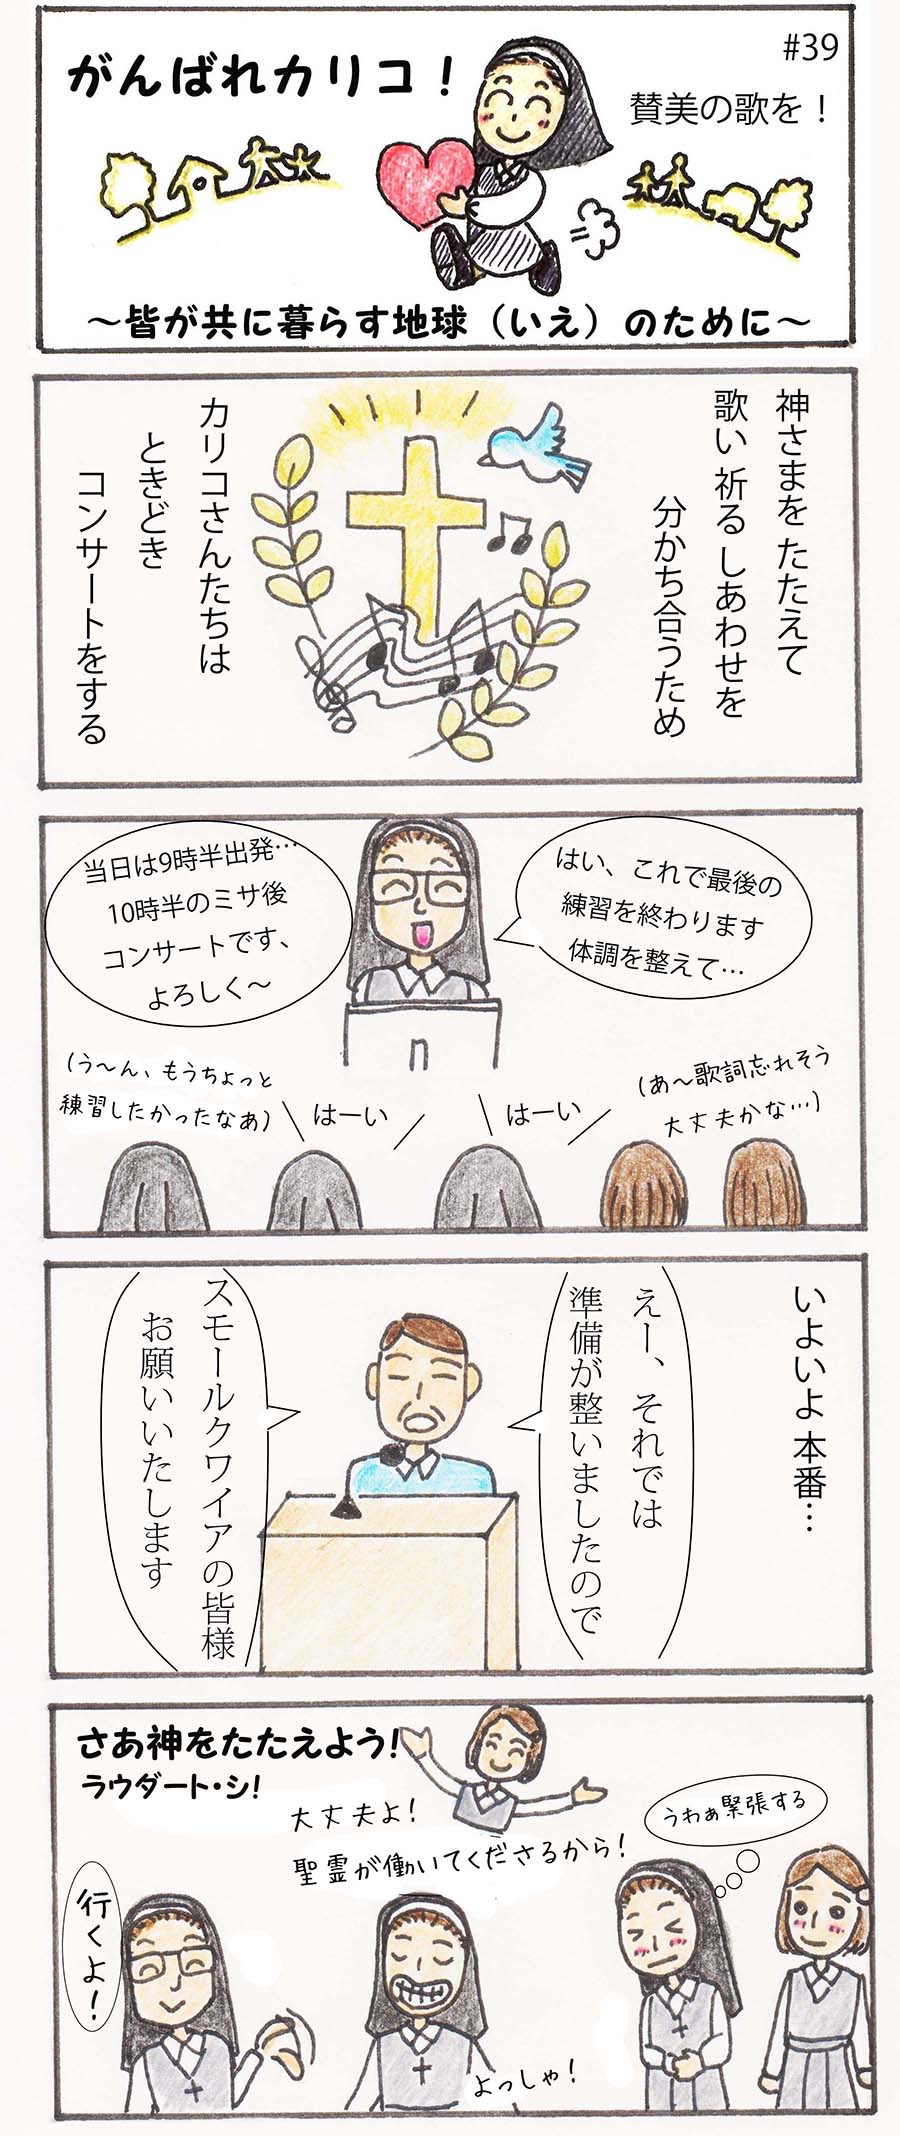 #39
がんばれカリコ！
賛美の歌を！
～皆が共に暮らす地球（いえ）のために～
神さまを たたえて
歌い 祈る しあわせを
分かち合うため
カリコさんたちは
ときどき
コンサートをする
はい、これで最後の
練習を終わります
体調を整えて…
当日は9時半出発…
10時半のミサ後
コンサートです、
よろしく～
(あ～歌詞忘れそう
大丈夫かな…)
はーい
はーい
(う～ん、もうちょっと
練習したかったなあ)
いよいよ 本番…
えー、それでは
準備が整いましたので
スモールクワイアの皆様
お願いいたします
さあ神をたたえよう!
ラウダート・シ!
大丈夫よ!
聖霊が働いてくださるから!
うわぁ緊張する
行くよ!
よっしゃ!